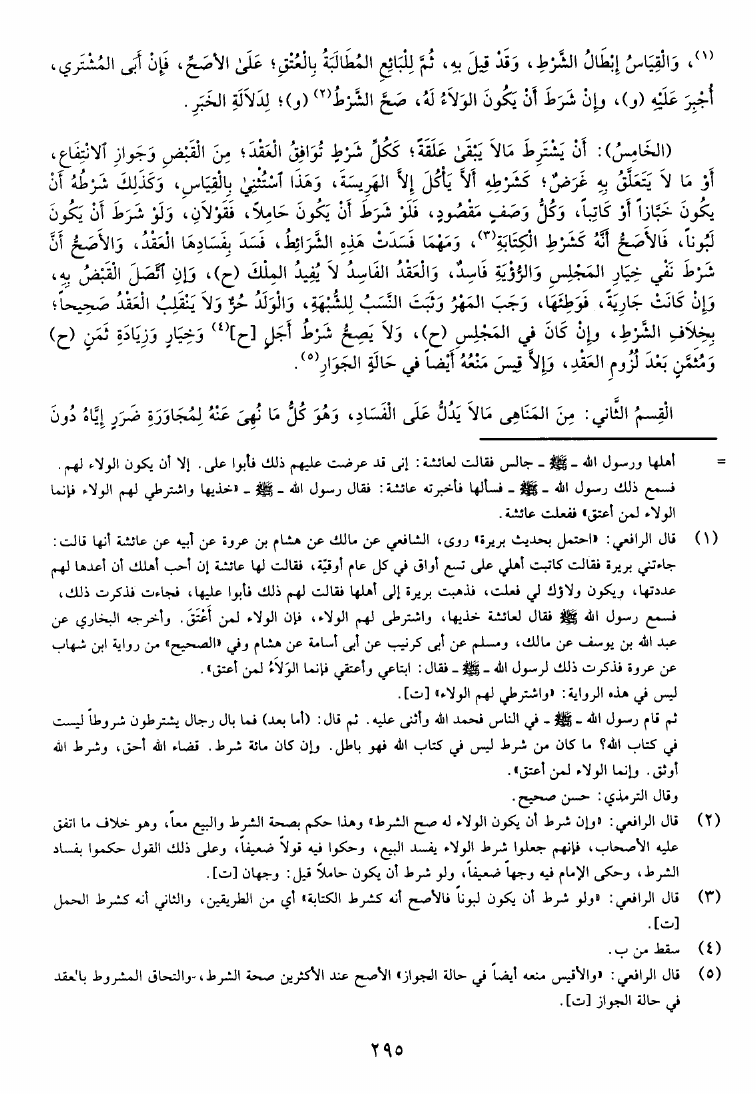 (١)، وَالْقِيَاسُ إِبْطَالُ الشَّرْطِ، وَقَدْ قِيلَ بِهِ، ثُمَّ لِلْبَائِعِ المُطَالَبَةُ بِالْعِتْقِ؛ عَلَى الأصَحِّ، فَإِنْ أَبَى المُشْتَرِي،
أُجْبِرَ عَلَيْهِ (و)، وإِنْ شَرَطَ أَنْ يَكُونَ الوَلاَءُ لَهُ، صَحَّ الشَّرْطُ(٢) (و)؛ لِدَلاَلَةِ الخَبَرِ.
(الخَامِسُ): أَنْ يَشْتَرِطَ مَالاَ يَبْقَى عَلَقَةً؛ كَكُلِّ شَرْطٍ تُوَافِقُ الْعَقْدَ؛ مِنَ الْقَبْضِ وَجَوازِ الانْتِفَاعِ،
أَوْ مَا لاَ يَتَعَلَّقُ بِهِ غَرَضٌ؛ كَشَرْطِهِ أَلاَّ يَأْكُلَ إِلاَّ الهَرِيسَةَ، وَهَذَا اسْتُثْنِيَ بِالْقِيَاسِ، وَكَذَلِكَ شَرْطُهُ أَنْ
يَكُونَ خَبَّازاً أَوْ كَاتِباً، وَكُلُّ وَصْفٍ مَقْصُودٍ، فَلَوْ شَرَطَ أَنْ يَكُونَ حَامِلاً، فَقَوْلاَنِ، وَلَوْ شَرَطَ أَنْ يَكُونَ
لَبُوناً، فَالأَصَحُّ أَنَّهُ كَشَرْطِ الْكِتَابَةِ(٣)، وَمَهْمَا فَسَدَتْ هَذِهِ الشَّرَائِطُ، فَسَدَ بِفَسَادِهَا الْعَقْدُ، وَالأَصَحُّ أَنَّ
شَرْطَ نَفْيِ خِيَارِ المَجْلِسِ وَالرُّؤْيَةِ فَاسِدٌ، وَالْعَقْدُ الفَاسِدُ لاَ يُفِيدُ المِلْكَ (ح)، وَإِنِ اتَّصَلَ الْقَبْضُ بِهِ،
وَإِنْ كَانَتْ جَارِيَةً، فَوَطِئَهَا، وَجَبَ المَهْرُ وَثَبَتَ النَّسَبُ لِلشُّبْهَةِ، وَالْوَلَدُ حُرٌّ وَلاَ يَنْقَلِبُ الْعَقْدُ صَحِيحاً؛
بِخِلاَفِ الشَّرْطِ، وإِنْ كَانَ في المَجْلِسِ (ح)، وَلاَ يَصِحُّ شَرْطُ أَجَلٍ [ح](٤) وَخِيَارٍ وَزِيَادَةِ ثَمَنٍ (ح)
وَمُثَمَّنٍ بَعْدَ لُزُومِ العَقْدِ، وَإِلاَّ قِيسَ مَنْعُهُ أَيْضاً في حَالَةِ الجَوازِ(٥).
الْقِسْمُ الثَّاني: مِنَ المَنَاهِى مَالاَ يَدُلُّ عَلَى الْفَسَادِ، وَهُوَ كُلُّ مَا نُهِيَ عَنْهُ لِمُجَاوَرَةِ ضَرَرٍ إِيَّاهُ دُونَ
= أهلها ورسول الله ـ ﷺ ـ جالس فقالت لعائشة: إنى قد عرضت عليهم ذلك فأبوا على. إلا أن يكون الولاء لهم.
فسمع ذلك رسول الله ـ ﷺ ـ فسألها فأخبرته عائشة: فقال رسول الله ـ ﷺ ـ «خذيها واشترطي لهم الولاء فإنما
الولاء لمن أعتق» ففعلت عائشة.
(١) قال الرافعي: «احتمل بحديث بريرة» روى، الشافعي عن مالك عن هشام بن عروة عن أبيه عن عائشة أنها قالت:
جاءتني بريرة فقالت كاتبت أهلي على تسع أواق في كل عام أوقيّة، فقالت لها عائشة إن أحب أهلك أن أعدها لهم
عددتها، ويكون ولاؤك لي فعلت، فذهبت بريرة إلى أهلها فقالت لهم ذلك فأبوا عليها، فجاءت فذكرت ذلك،
فسمع رسول الله ﷺ فقال لعائشة خذيها، واشترطى لهم الولاء، فإن الولاء لمن أَعْتَقَ. وأخرجه البخاري عن
عبد الله بن يوسف عن مالك، ومسلم عن أبى كرنيب عن أبى أسامة عن هشام وفي «الصحيح» من رواية ابن شهاب
عن عروة فذكرت ذلك لرسول الله ـ ﷺ ـ فقال: ابتاعي وأعتقي فإنما الوَلَاءُ لمن أعتق».
ليس في هذه الرواية: «واشترطي لهم الولاء» [ت].
ثم قام رسول الله ـ ﷺ ـ في الناس فحمد الله وأثنى عليه. ثم قال: (أما بعد) فما بال رجال يشترطون شروطاً ليست
في كتاب الله؟ ما كان من شرط ليس في كتاب الله فهو باطل. وإن كان مائة شرط. قضاء الله أحق، وشرط الله
أوثق. وإنما الولاء لمن أعتق».
وقال الترمذي: حسن صحيح.
(٢) قال الرافعي: «وإن شرط أن يكون الولاء له صح الشرط» وهذا حكم بصحة الشرط والبيع معاً، وهو خلاف ما اتفق
عليه الأصحاب، فإنهم جعلوا شرط الولاء يفسد البيع، وحكوا فيه قولاً ضعيفاً، وعلى ذلك القول حكموا بفساد
الشرط، وحكى الإمام فيه وجهاً ضعيفاً، ولو شرط أن يكون حاملاً قيل: وجهان [ت].
(٣) قال الرافعي: «ولو شرط أن يكون لبوناً فالأصح أنه كشرط الكتابة» أي من الطريقين، والثاني أنه كشرط الحمل
[ت].
(٤) سقط من ب.
(٥) قال الرافعي: «والأقيس منعه أيضاً في حالة الجواز» الأصح عند الأكثرين صحة الشرط، والتحاق المشروط بالعقد
في حالة الجواز [ت].
٢٩٥